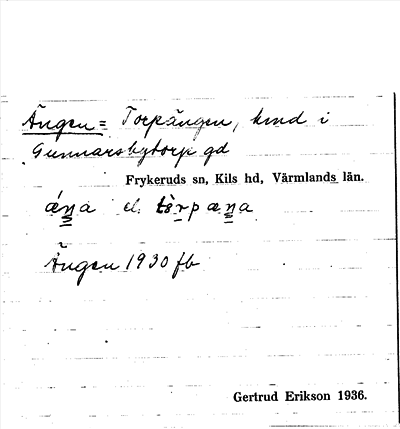 Ängen = Torpängen, kmd i
Gunnarsbytorp gd
Frykeruds sn, Kils hd, Värmlands län.
æ´ŋa el. tòrpæŋa
Ängen 1930 fb
Gertrud Erikson 1936.